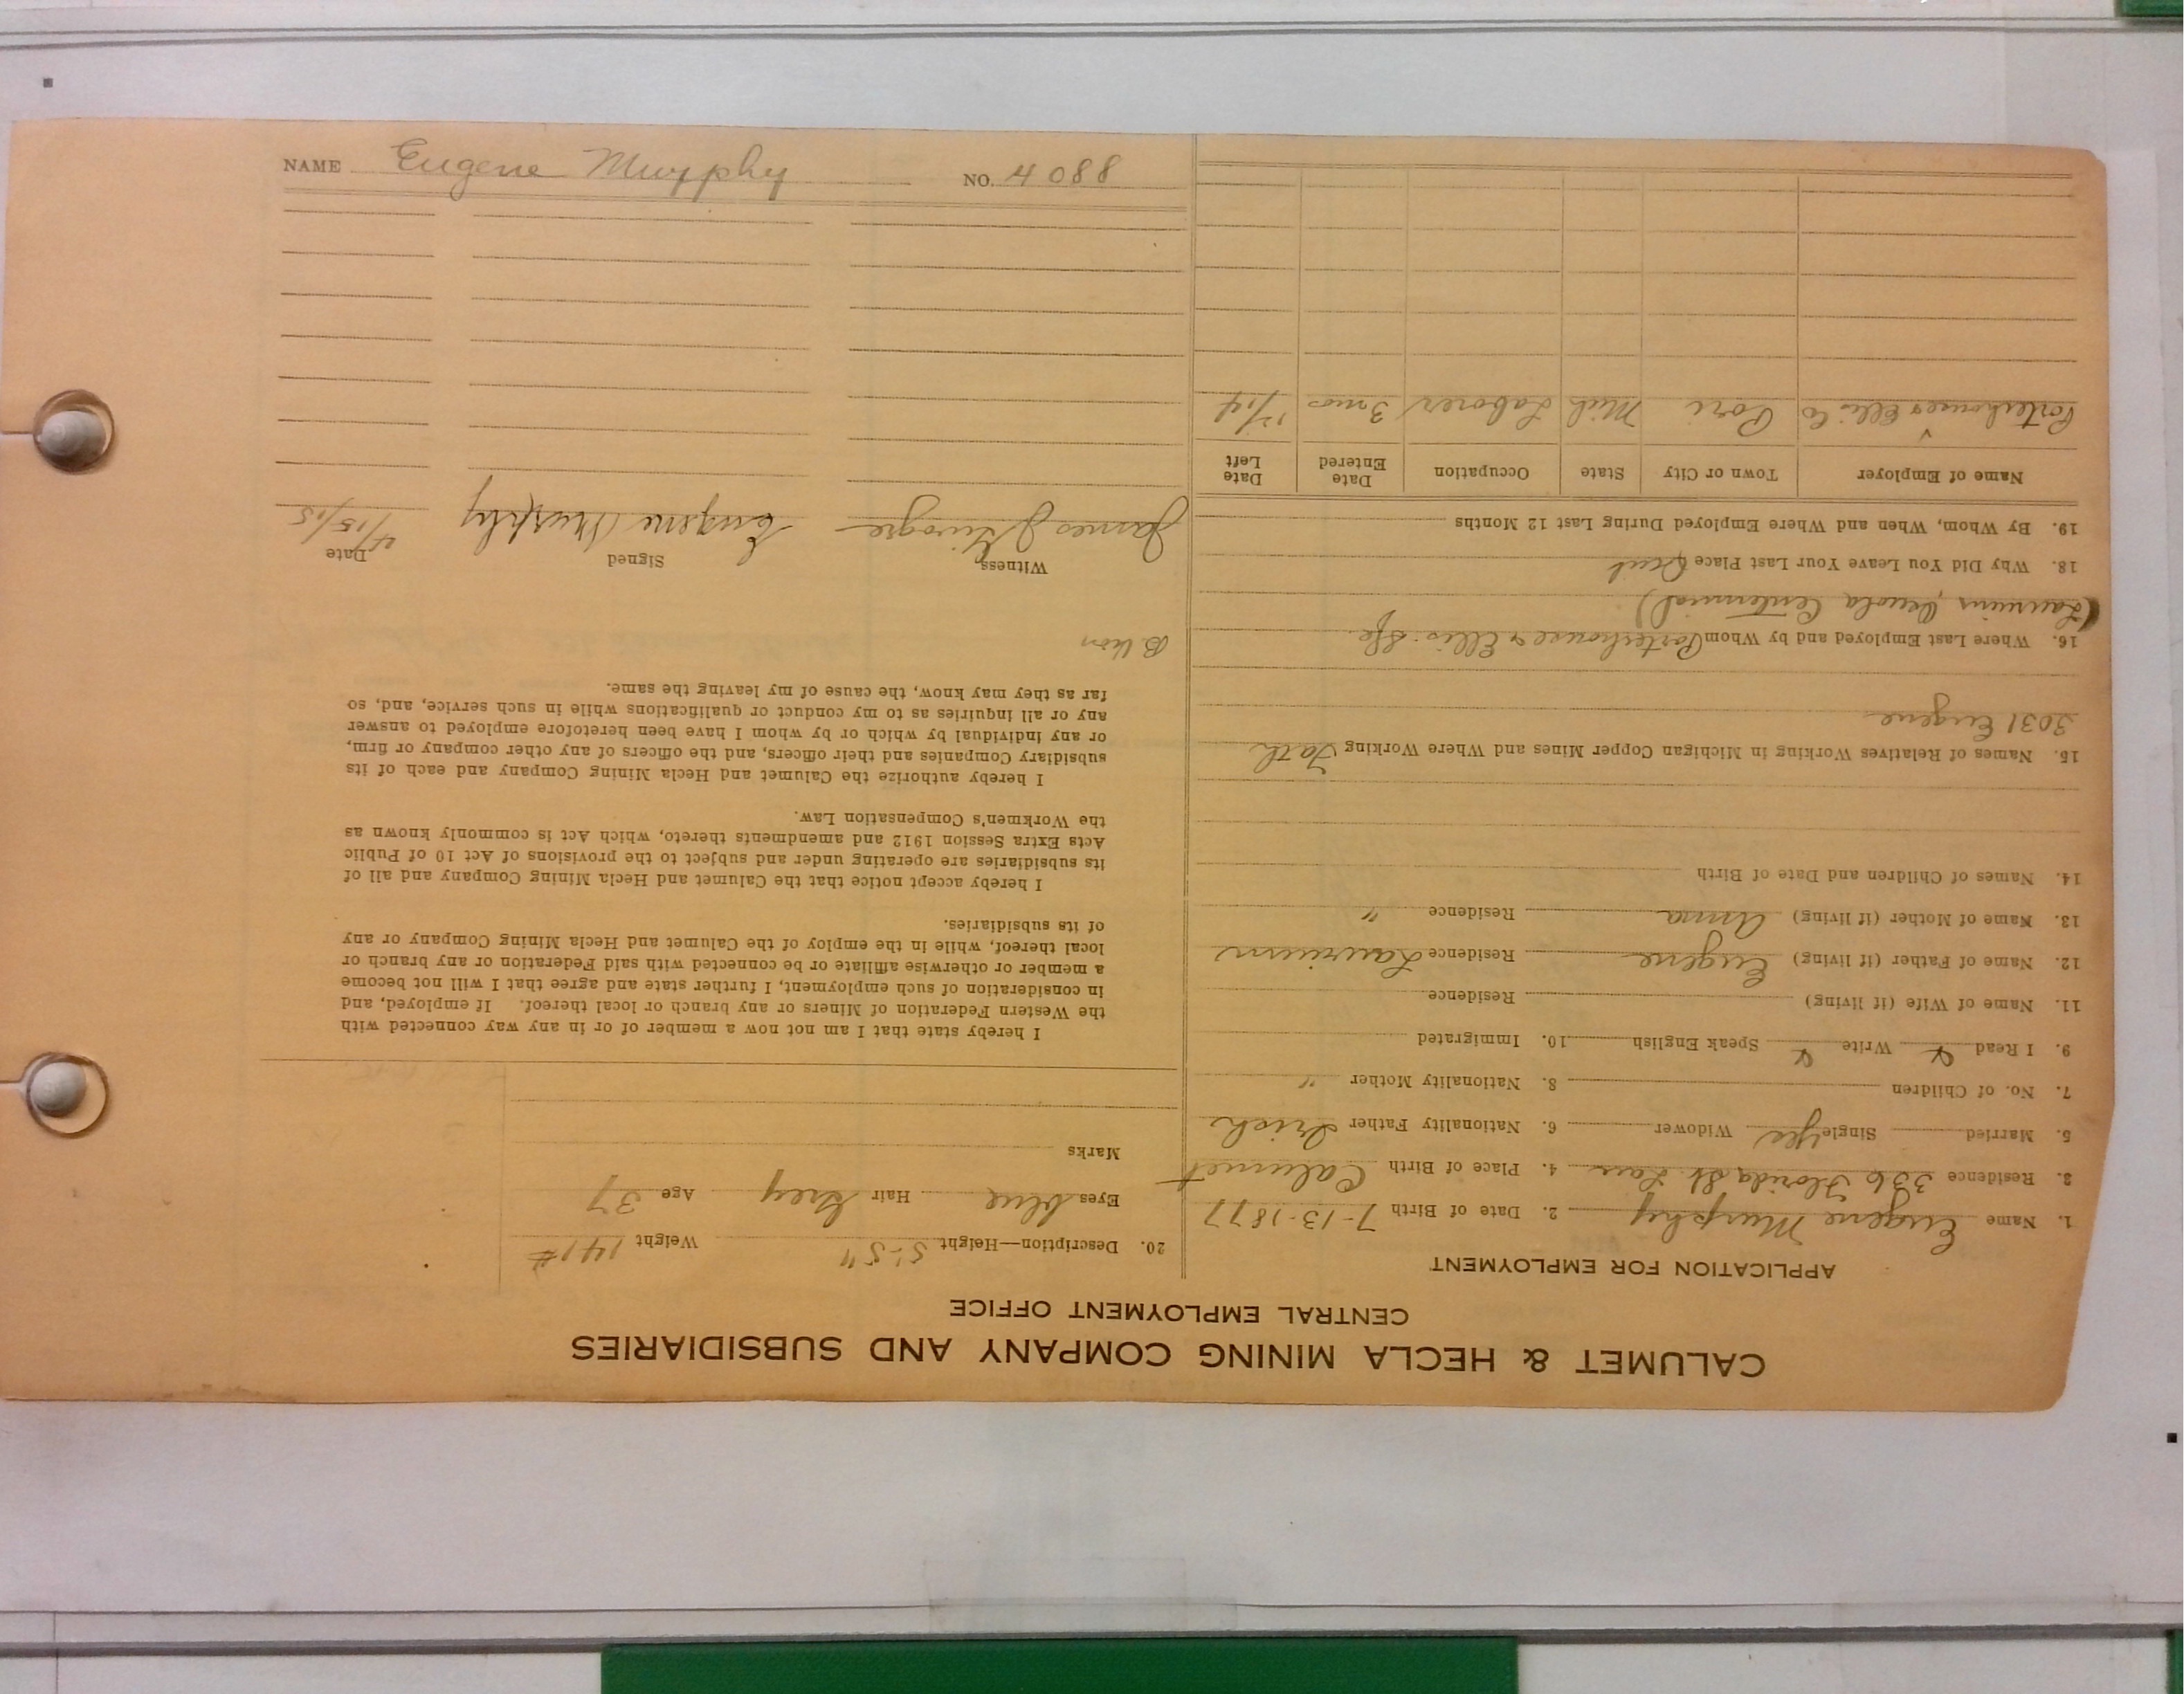 CALUMET & HECLA MINING COMPANY AND SUBSIDIARIES
CENTRAL EMPLOYMENT OFFICE
APPLICATION FOR EMPLOYMENT
1. Name Eugene Murphy 2. Date of Birth 7-13-1877
3. Residence 336 Florida St. Lau 4. Place of Birth Calumet
5. Married Single Yes Widower 6. Nationality Father Irish
7. No. of Children 8. Nationality Mother "
9. I Read Write Speak English 10. Immigrated
11. Name of Wife (if living) Residence
12. Name of Father (if living) Eugene Residence Laurium
13. Name of Mother (if living) Anna Residence "
14. Names of Children and Date of Birth
15. Names of Relatives Working in Michigan Copper Mines and Where Working Fath
3031 Eugene
16. Where Last Employed and by Whom Porterhouse & Ellis
(Laurium, Osceola Centennial)
18. Why Did You Leave Your Last Place Quit
19. By Whom, When and Where Employed During Last 12 Months
Name of Employer Town or City State Occupation Date Entered Date Left
Porterhouse & Ellis Co Pori Mich Laborer 3 mos 12/14
20. Description—Height 5'-5" Weight 141#
Eyes blue Hair Grey Age 37
Marks
I hereby state that I am not now a member of or in any way connected with
the Western Federation of Miners or any branch or local thereof. If employed, and
in consideration of such employment, I further state and agree that I will not become
a member or otherwise affiliate or be connected with said Federation or any branch or
local thereof, while in the employ of the Calumet and Hecla Mining Company or any
of its subsidiaries.
I hereby accept notice that the Calumet and Hecla Mining Company and all of
its subsidiaries are operating under and subject to the provisions of Act 10 of Public
Acts Extra Session 1912 and amendments thereto, which Act is commonly known as
the Workmen's Compensation Law.
I hereby authorize the Calumet and Hecla Mining Company and each of its
subsidiary Companies and their officers, and the officers of any other company or firm,
or any individual by which or by whom I have been heretofore employed to answer
any or all inquiries as to my conduct or qualifications while in such service, and, so
far as they may know, the cause of my leaving the same.
Witness Signed Date
James Eugene Murphy 4/15/15
NAME Eugene Murphy NO. 4088